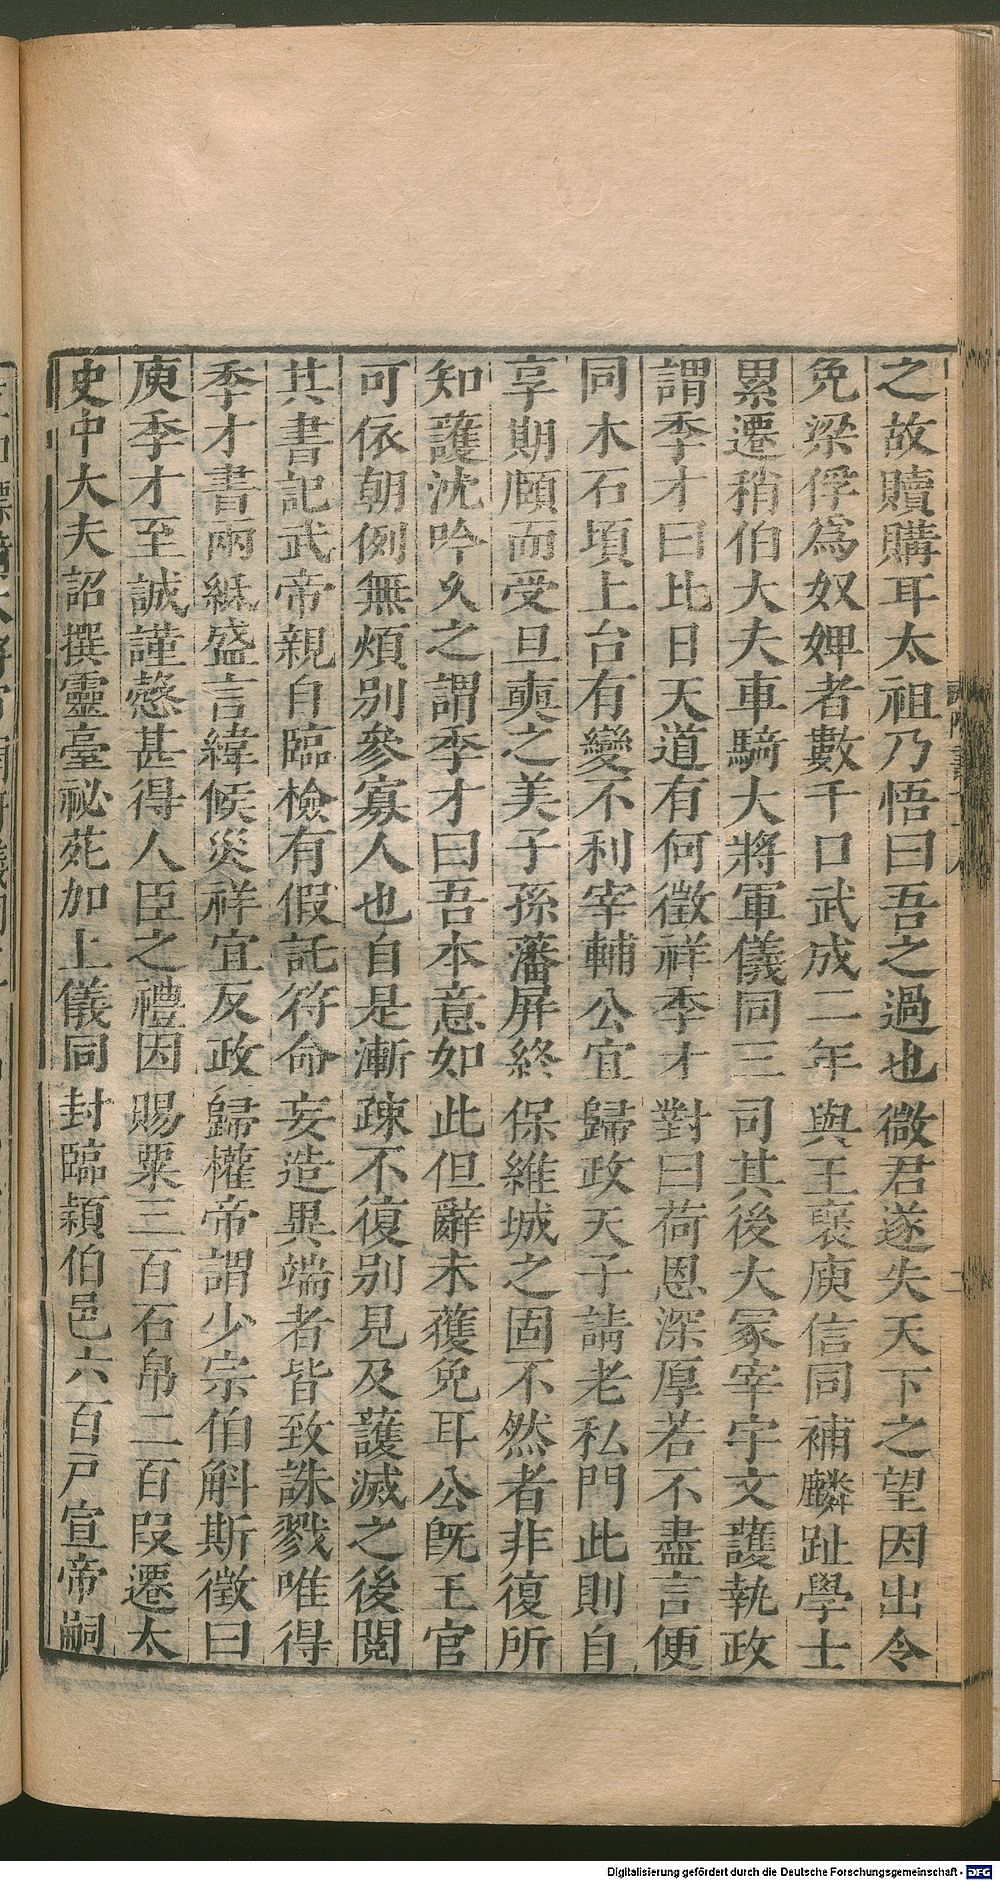 之故贖購耳太祖乃悟曰吾之過也微君遂失天下之望因出令
免梁俘爲奴婢者數千口武成二年與王襃庾信同補麟趾學士
累遷稍伯大夫車騎大將軍儀同三司其後大冢宰宇文護執政
謂季才曰比日天道有何徵祥季才對曰荷恩深厚若不盡言便
同木石頃上台有變不利宰輔公宜歸政天子請老私門此則自
享期頤而受旦奭之美子孫藩屏終保維城之固不然者非復所
知護沈吟久之謂季才曰吾本意如此但辭未獲免耳公旣王官
可依朝例無煩別參寡人也自是漸疎不復別見及護滅之後閱
其書記武帝親自臨檢有假託符命妄造異端者皆致誅戮唯得
季才書兩紙盛言緯候災祥宜反政歸權帝謂少宗伯斛斯徵曰
庾季才至誠謹慤甚得人臣之禮因賜粟三百石帛二百段遷太
史中大夫詔撰靈臺祕苑加上儀同封臨潁伯邑六百戸宣帝嗣
Digitalisierung gefördert durch die Deutsche Forschungsgemeinschaft - DFG